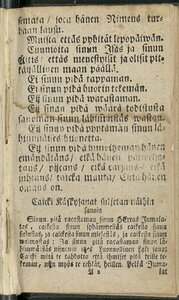 semata / joca hänen Nimens tur-
haan lausu.
Muista ettäs pyhität lepopäiwän.
Cunnioita sinun Isäs ja sinun
Äitis / ettäs menestyisit ja olisit pit-
käijällinen maan päällä.
Ei sinun pidä tappaman.
Ei sinun pidä huorin tekemän.
Ei sinun pidä warastaman.
Ei sinun pidä wäärä todistusta
sanoman sinun lähimmäistäs wastan.
Ei sinun pidä pyytämän sinun lä-
himmäises huonetta.
Ei sinun pidä himoitzeman hänen
emändätäns / eikä hänen
tans / pijcans / eikä carjans / eikä
juhtans / taicka muuta / cuin hänen
omans on.
Caicki Käskysanat suljetan näihin
sanoin
Sinun pitä racastaman sinun HErras Jumala-
tas / caikesta sinun sydämmestäs caikesta sinun
sielustas / ja caikesta sinun mielestäs / ja caikesta sinun
woimastas: Ja sinun pitä racastaman sinun
lähimmäistäs nijncuin idzes
mitä te tahdotte että ihmiset pitä teille te-
kemän / nijn myös te tehkät heille. Pelkä Juma-
A 2 lat